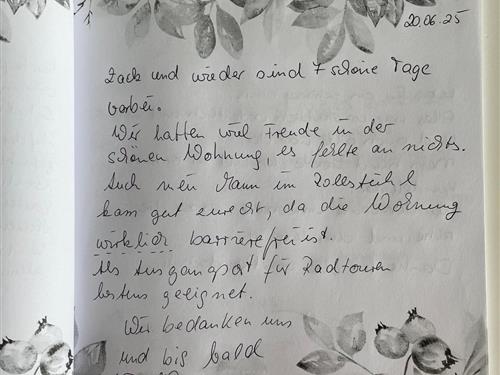 20.06.25
Zack und wieder sind 7 schöne Tage
vorbei.
Wir hatten viel Freude in der
schönen Wohnung, es fehlte an nichts.
Auch mein Mann im Rollstuhl
kam gut zurecht, da die Wohnung
wirklich barrierefrei ist.
Als Ausgangsort für Radtouren
bestens geeignet.
Wir bedanken uns
und bis bald